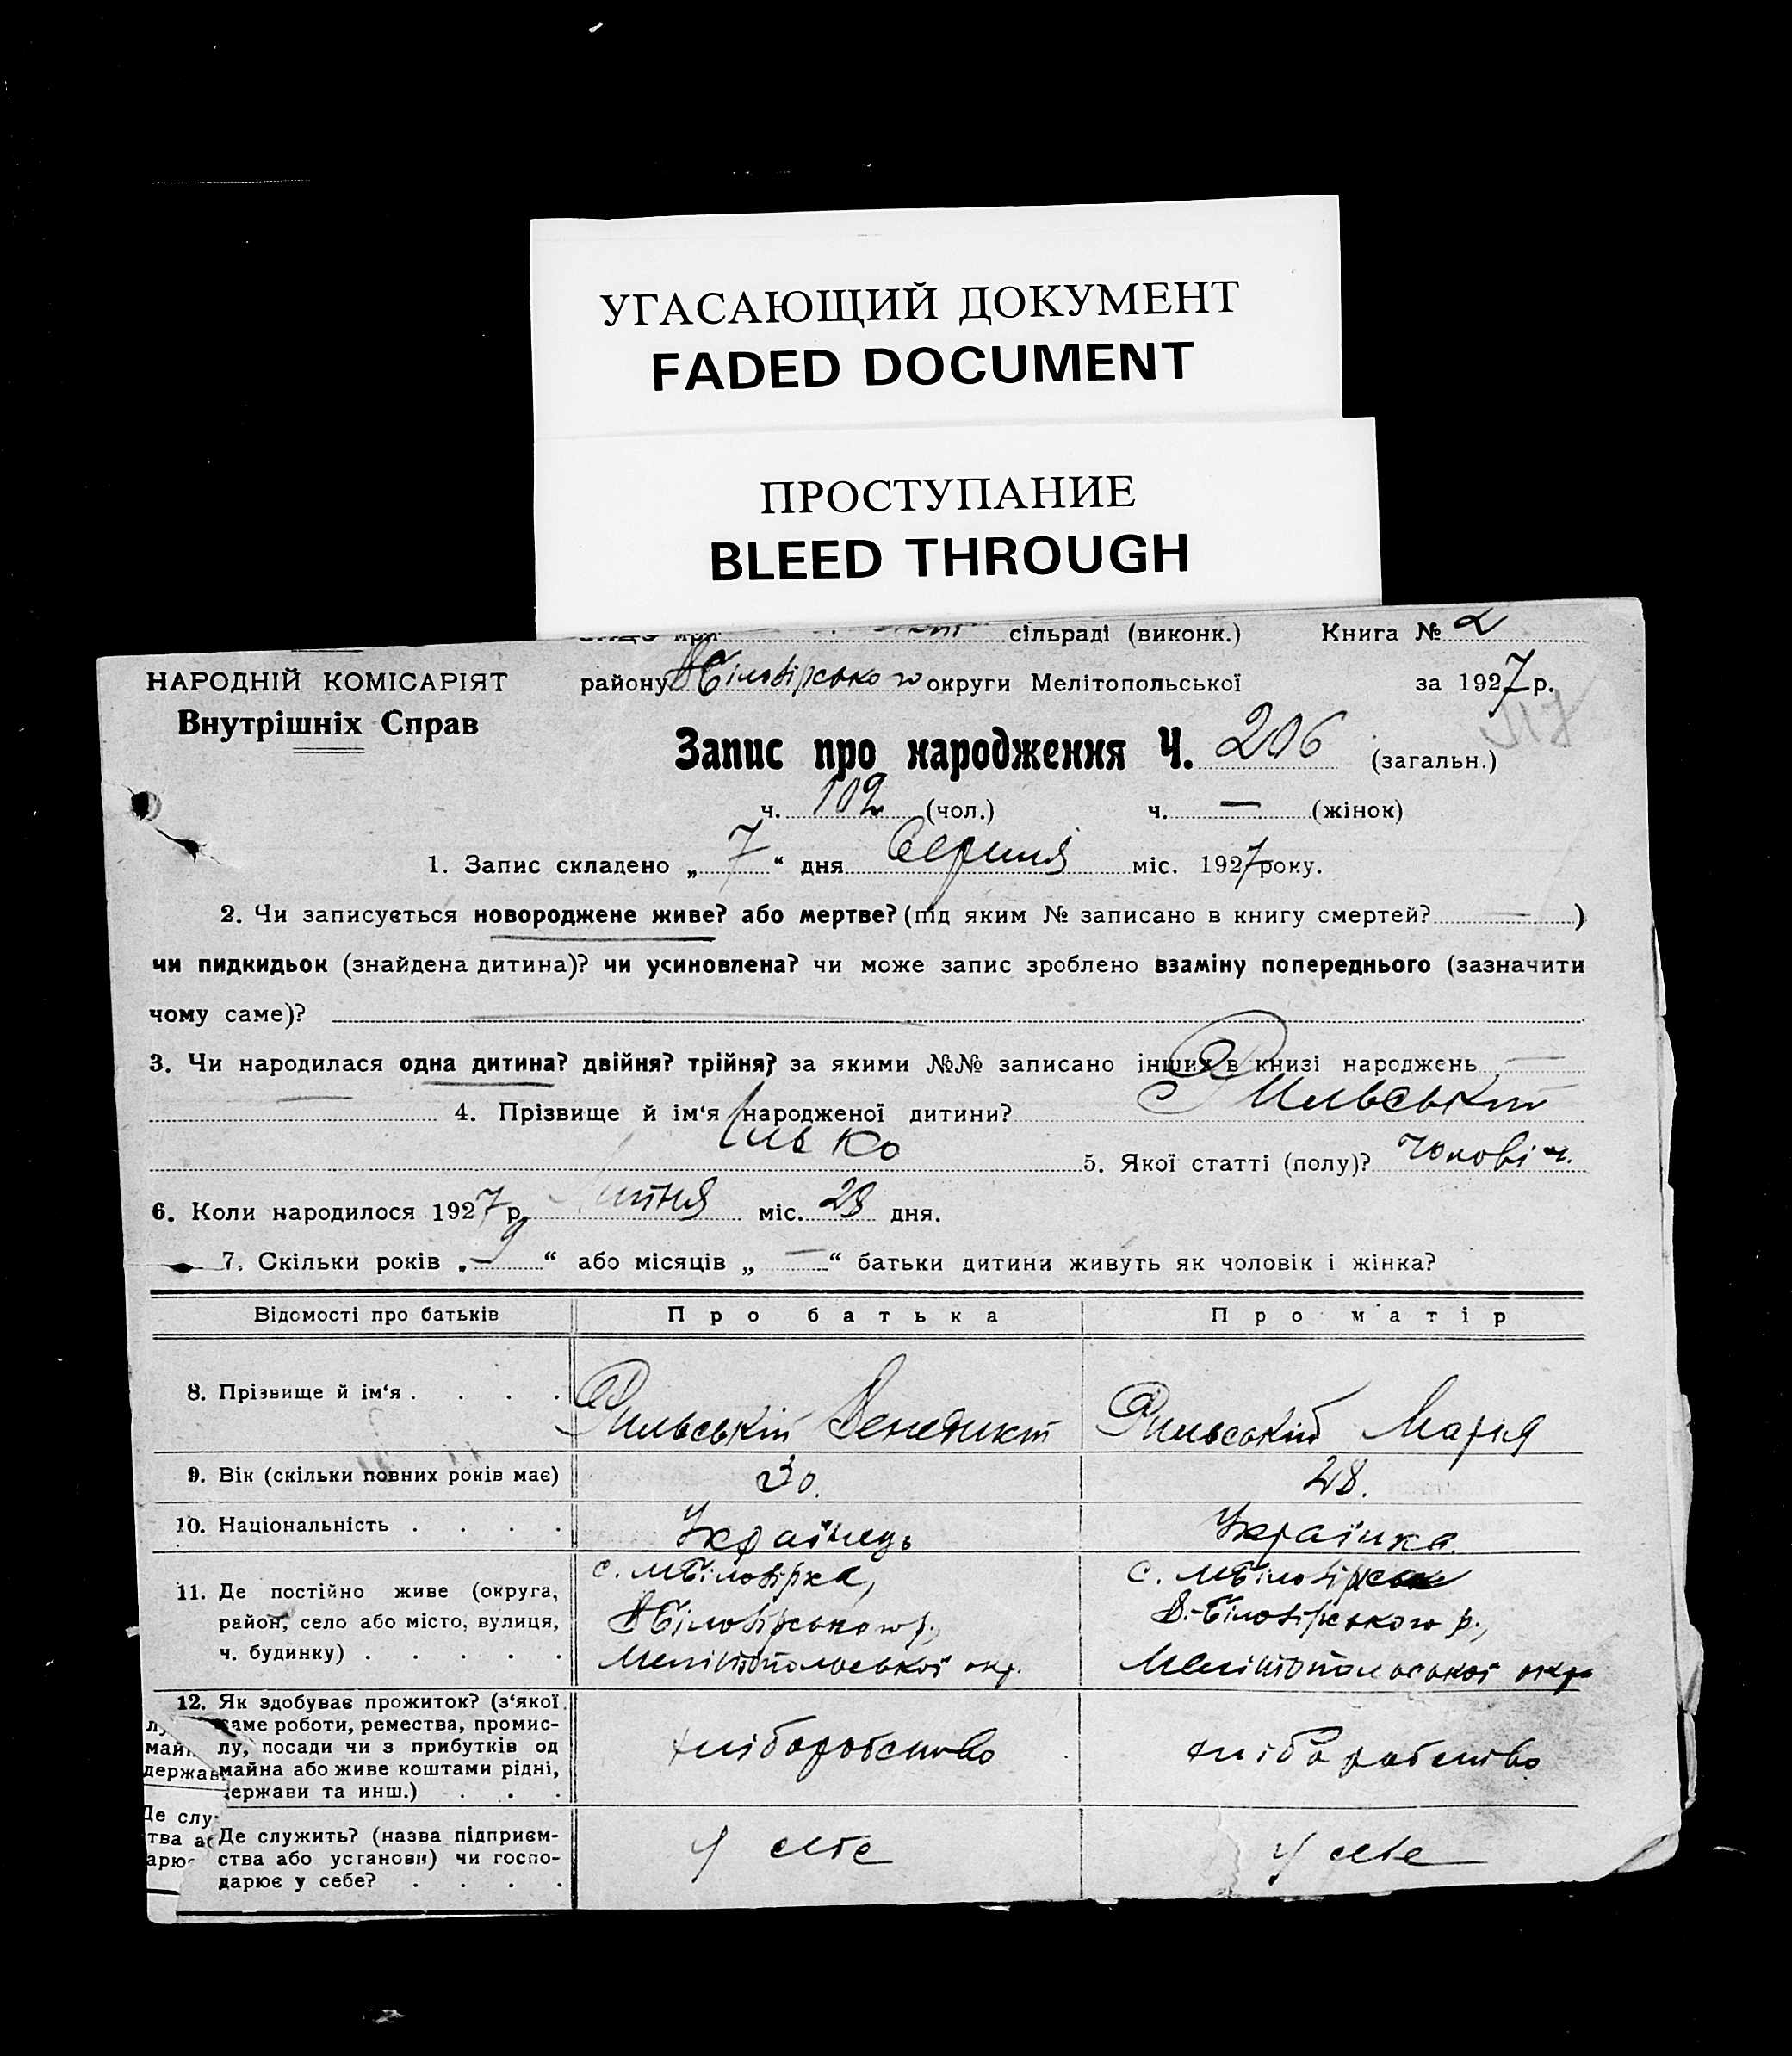 УГАСАЮЩИЙ ДОКУМЕНТ
FADED DOCUMENT
ПРОСТУПАНИЕ
BLEED THROUGH
сільраді (виконк.) Книга № 2
НАРОДНІЙ КОМІСАРІЯТ
Внутрішніх Справ
району В Білозірського округи Мелітопольської за 1927 р.
Запис про народження Ч. 206 (загальн.)
ч. 102 (чол.) ч. — (жінок)
1. Запис складено „ 7 “ дня Серпня міс. 1927 року.
2. Чи записується новороджене живе? або мертве? (під яким № записано в книгу смертей? — )
чи пидкидьок (знайдена дитина)? чи усиновлена? чи може запис зроблено взаміну попереднього (зазначити
чому саме)?
3. Чи народилася одна дитина? двійня? трійня? за якими №№ записано інших в книзі народжень —
— 4. Прізвище й ім‘я народженої дитини? Рильський
Ілько 5. Якої статті (полу)? чоловіч.
6. Коли народилося 1927 р. Липня міс. 28 дня.
7. Скільки років „ 9 “ або місяців „ — “ батьки дитини живуть як чоловік і жінка?
Відомості про батьків Про батька Про матір
8. Прізвище й ім‘я . . . . Рильський Венедикт Рильській Марія
9. Вік (скільки повних років має) 30. 28.
10. Національність . . . . Українець Українка
11. Де постійно живе (округа, с. МБілозірка, с. МБілозірськ
район, село або місто, вулиця, ВБілозірського р., В.-Білозірського р.,
ч. будинку) . . . . . Мелітопольської окр. Мелітопольської окр
12. Як здобуває прожиток? (з‘якої
саме роботи, ремества, промис-
лу, посади чи з прибутків од хліборобство хліборобство
майна або живе коштами рідні,
держави та инш.) . . .
Де служить? (назва підприєм-
ства або установи) чи госпо- у себе у себе
дарює у себе? . . . .